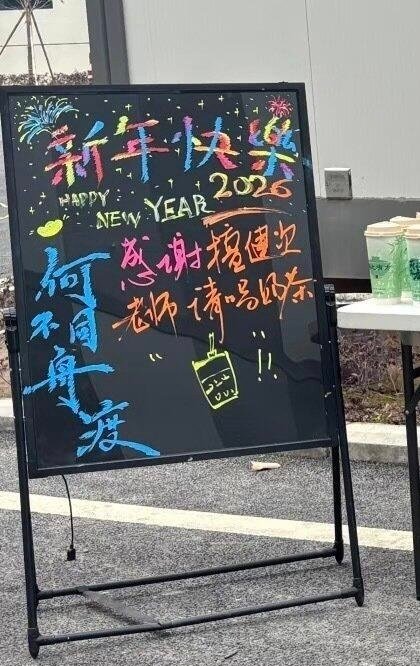 新年快樂
HAPPY NEW YEAR 2026
感谢檀健次
老师请喝奶茶
何不同舟渡